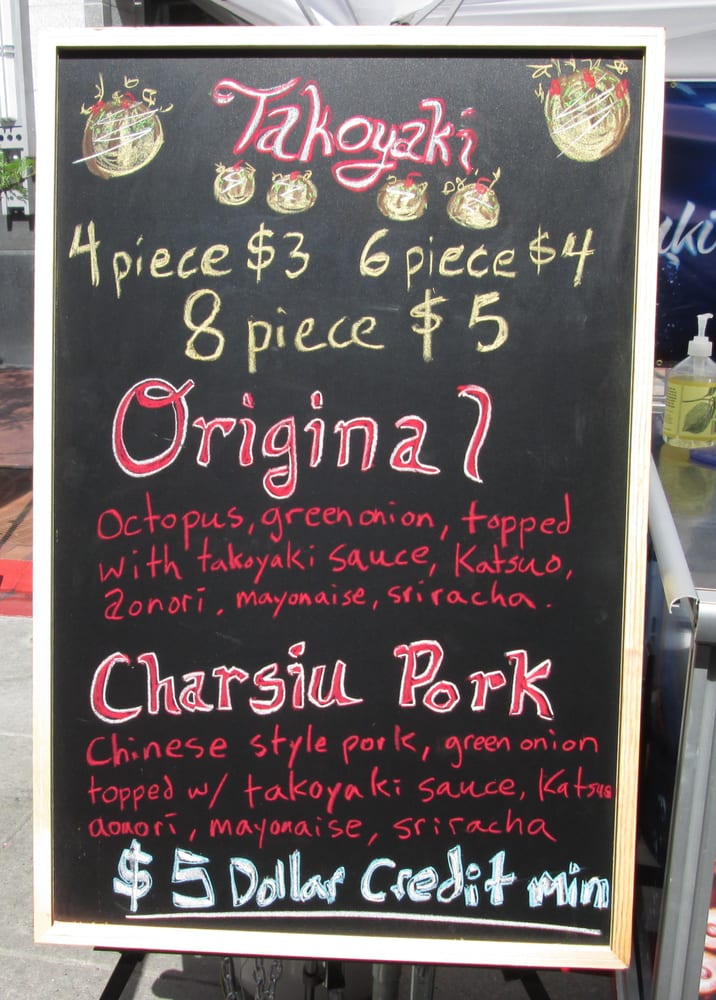 Takoyaki
4 piece $3 6 piece $4
8 piece $5
Original
Octopus, green onion, topped
with takoyaki sauce, Katsuo,
aonori, mayonaise, sriracha.
Charsiu Pork
Chinese style pork, green onion
topped w/ takoyaki sauce, Katsuo
aonori, mayonaise, sriracha
$5 Dollar Credit min